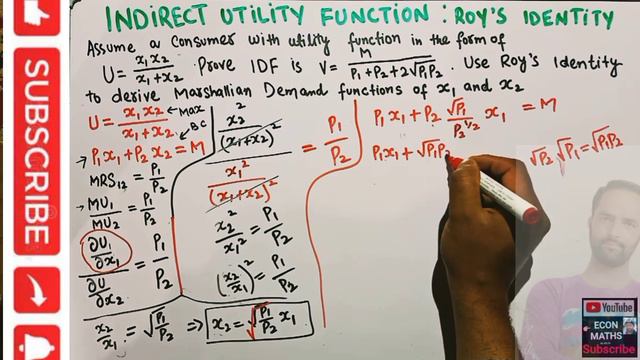 INDIRECT UTILITY FUNCTION : ROY'S IDENTITY
Assume a Consumer with utility function in the form of
U = x₁x₂ / x₁+x₂ . Prove IDF is V = M / P₁+P₂+2√P₁P₂ . Use Roy's Identity
to derive Marshallian Demand functions of x₁ and x₂
U = x₁x₂ / x₁+x₂ ← Max
← BC
→ P₁x₁ + P₂x₂ = M
MRS₁₂ = P₁/P₂
→ MU₁/MU₂ = P₁/P₂
∂U₁/∂x₁ / ∂U/∂x₂ = P₁/P₂
x₂/x₁ = √P₁/P₂ ⇒ x₂ = √P₁/P₂ x₁
x₂² / (x₁+x₂)² / x₁² / (x₁+x₂)² = P₁/P₂
x₂²/x₁² = P₁/P₂
(x₂/x₁)² = P₁/P₂
P₁x₁ + P₂ √P₁ / P₂^1/2 x₁ = M
P₁x₁ + √P₁P₂
√P₂ √P₁ = √P₁P₂
SUBSCRIBE
YouTube
ECON
MATHS
Subscribe